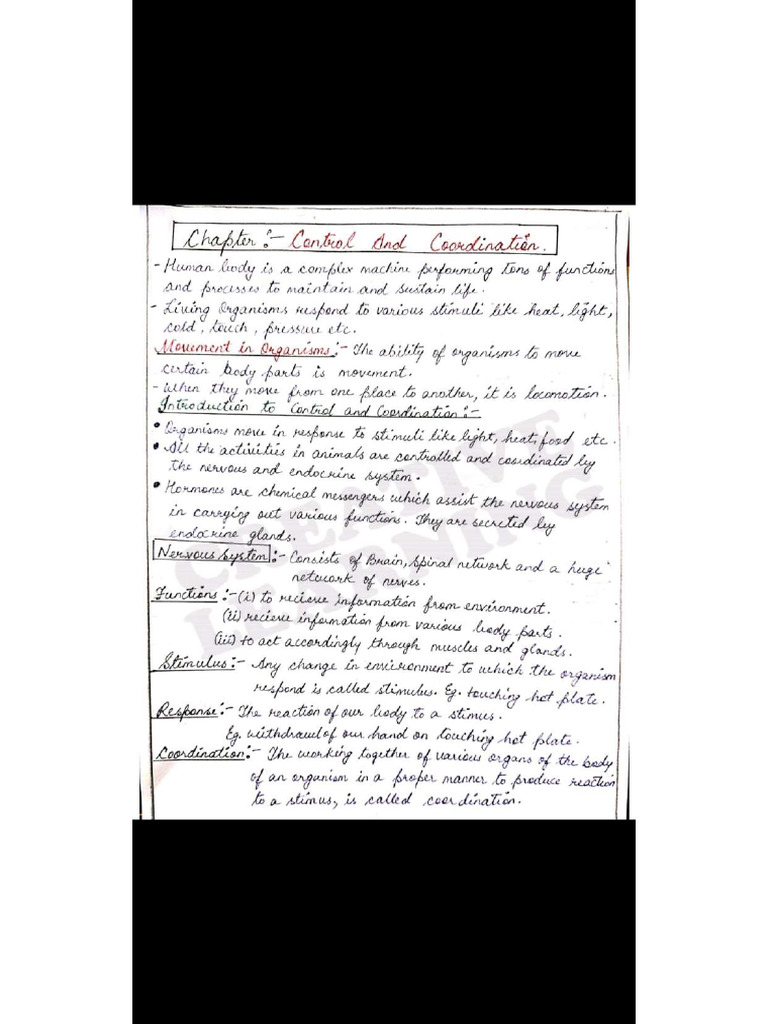 Chapter :- Control And Coordination.
- Human body is a complex machine performing tons of functions
and processes to maintain and sustain life.
- Living Organisms respond to various stimuli like heat, light,
cold, touch, pressure etc.
Movement in Organisms :- The ability of organisms to move
certain body parts is movement.
- When they move from one place to another, it is locomotion.
Introduction to Control and Coordination :-
• Organisms move in response to stimuli like light, heat, food etc.
• All the activities in animals are controlled and coordinated by
the nervous and endocrine system.
• Hormones are chemical messengers which assist the nervous system
in carrying out various functions. They are secreted by
endocrine glands.
Nervous System :- Consists of Brain, Spinal network and a huge
network of nerves.
Functions :- (i) to recieve information from environment.
(ii) recieve information from various body parts.
(iii) to act accordingly through muscles and glands.
Stimulus :- Any change in environment to which the organism
respond is called stimulus. Eg. touching hot plate.
Response :- The reaction of our body to a stimus.
Eg. withdrawl of our hand on touching hot plate.
Coordination :- The working together of various organs of the body
of an organism in a proper manner to produce reaction
to a stimus, is called coordination.
CREATIVE
LEARNING